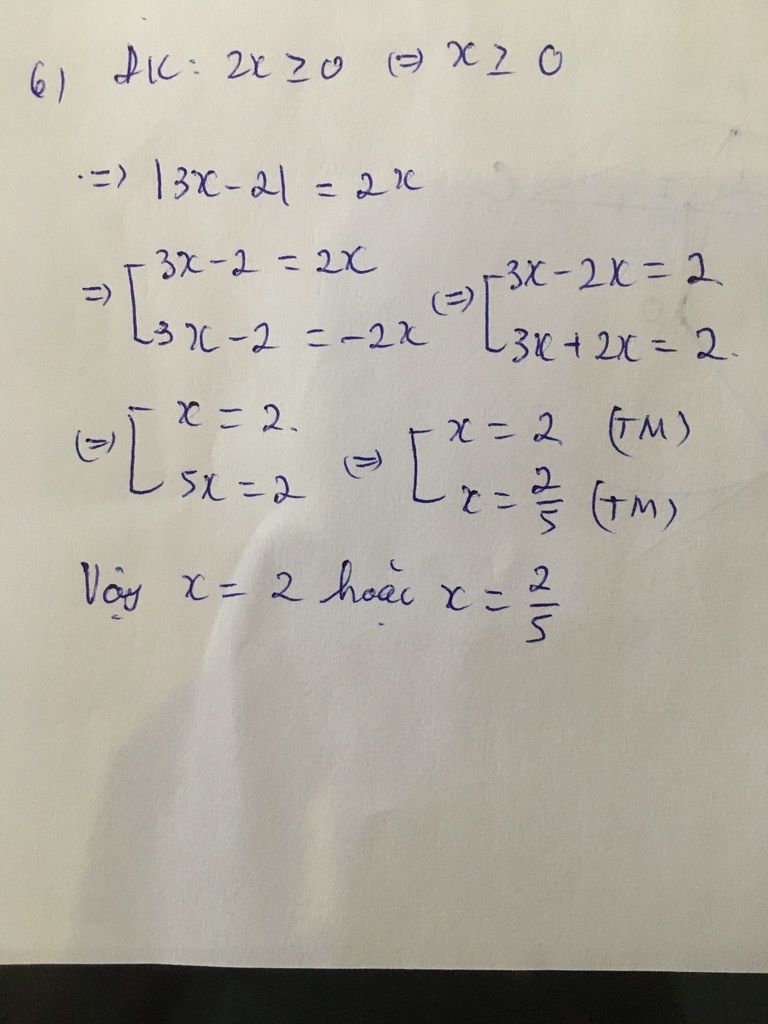 6) ĐK: 2x ≥ 0 (=) x ≥ 0
·=) |3x-2| = 2x
=) [3x-2 = 2x (=) [3x-2x = 2.
3x-2 = -2x 3x+2x = 2.
(=) [x = 2. (=) [x = 2 (TM)
5x = 2 x = 2/5 (TM)
Vậy x = 2 hoặc x = 2/5